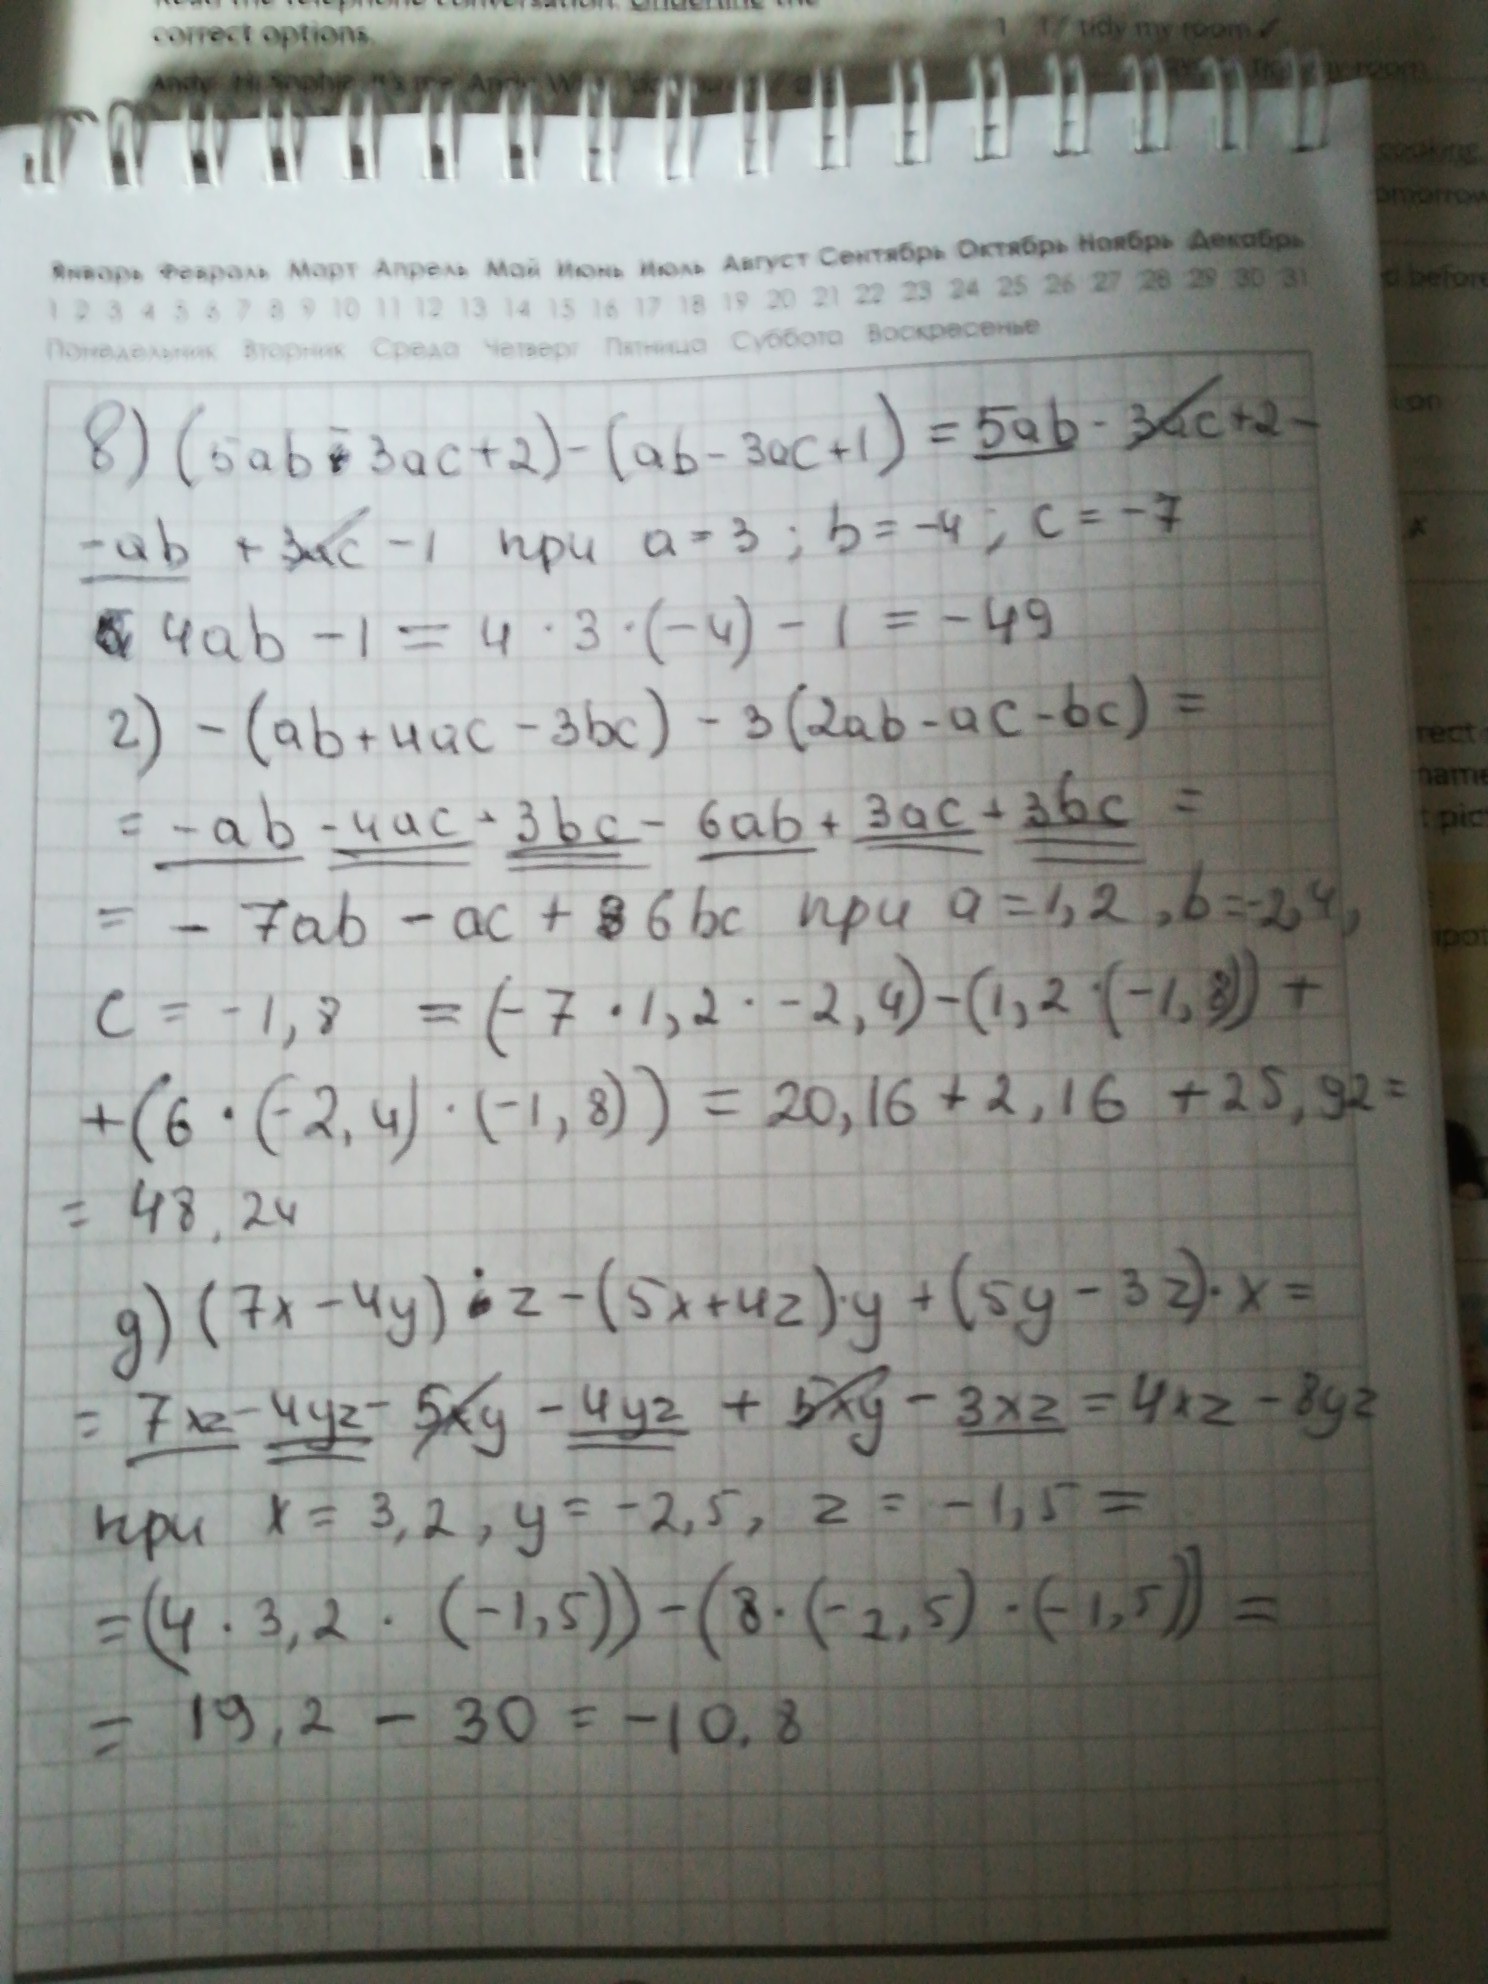 correct options.
1 I / tidy my room ✓
Январь Февраль Март Апрель Май Июнь Июль Август Сентябрь Октябрь Ноябрь Декабрь
1 2 3 4 5 6 7 8 9 10 11 12 13 14 15 16 17 18 19 20 21 22 23 24 25 26 27 28 29 30 31
Понедельник Вторник Среда Четверг Пятница Суббота Воскресенье
в) (5ab - 3ac + 2) - (ab - 3ac + 1) = 5ab - 3ac + 2 -
- ab + 3ac - 1 при a = 3 ; b = -4 ; c = -7
4ab - 1 = 4 · 3 · (-4) - 1 = -49
г) - (ab + 4ac - 3bc) - 3(2ab - ac - bc) =
= - ab - 4ac + 3bc - 6ab + 3ac + 3bc =
= - 7ab - ac + 6bc при a = 1,2 , b = -2,4,
c = -1,8 = (-7 · 1,2 · -2,4) - (1,2 · (-1,8)) +
+ (6 · (-2,4) · (-1,8)) = 20,16 + 2,16 + 25,92 =
= 48,24
д) (7x - 4y) · z - (5x + 4z) · y + (5y - 3z) · x =
= 7xz - 4yz - 5xy - 4yz + 5xy - 3xz = 4xz - 8yz
при x = 3,2 , y = -2,5, z = -1,5 =
= (4 · 3,2 · (-1,5)) - (8 · (-2,5) · (-1,5)) =
= 19,2 - 30 = -10,8